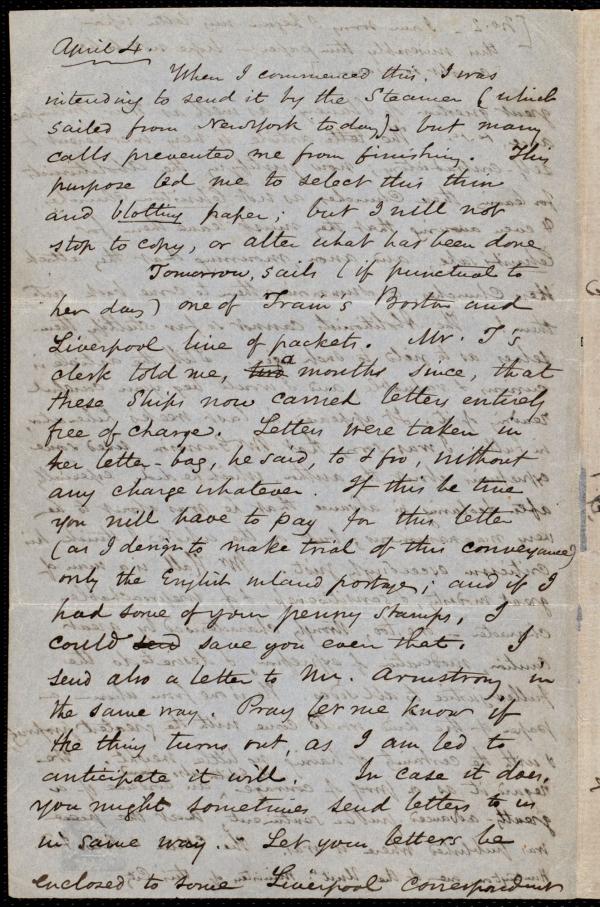 April 4.
When I commenced this, I was
intending to send it by the Steamer (which
sailed from New York today) - but many
calls prevented me from finishing. This
purpose led me to select this thin
and blotting paper; but I will not
stop to copy, or alter what has been done
Tomorrow, sails (if punctual to
her day) one of Train's Boston and
Liverpool line of packets. Mr. T's
clerk told me, two a months since, that
these Ships now carried letters entirely
free of charge. Letters were taken in
her letter-bag, he said, to & fro, without
any charge whatever. If this be true
you will have to pay for this letter
(as I design to make trial of this conveyance)
only the English inland postage; and if I
had some of your penny stamps, I
could send save you even that. I
send also a letter to Mr. Armstrong in
the same way. Pray let me know if
the thing turns out, as I am led to
anticipate it will. In case it does,
you might sometimes send letters to us
in same way. - Let your letters be
enclosed to some Liverpool correspondent